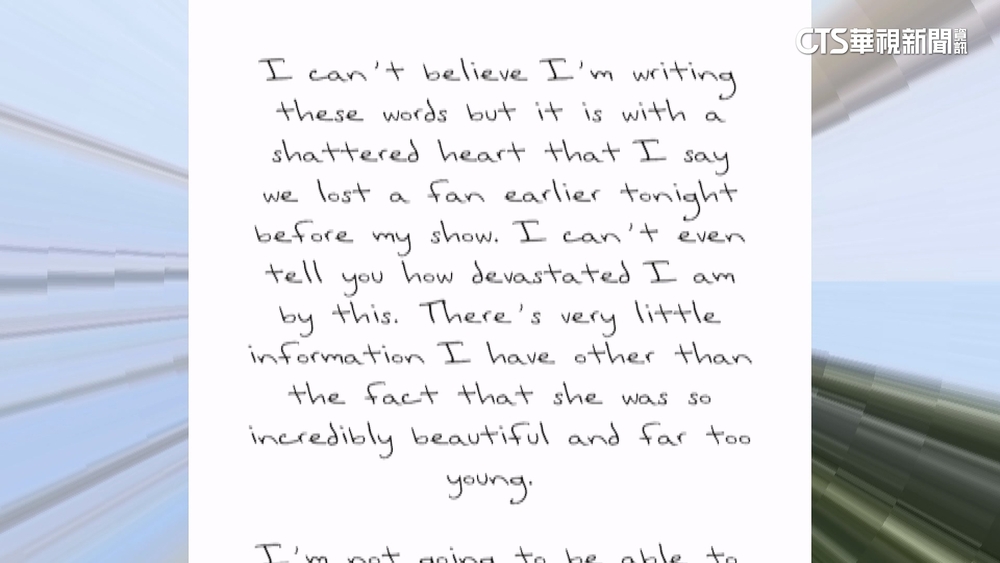 CTS華視新聞資訊
I can't believe I'm writing
these words but it is with a
shattered heart that I say
we lost a fan earlier tonight
before my show. I can't even
tell you how devastated I am
by this. There's very little
information I have other than
the fact that she was so
incredibly beautiful and far too
young.
I'm not going to be able to